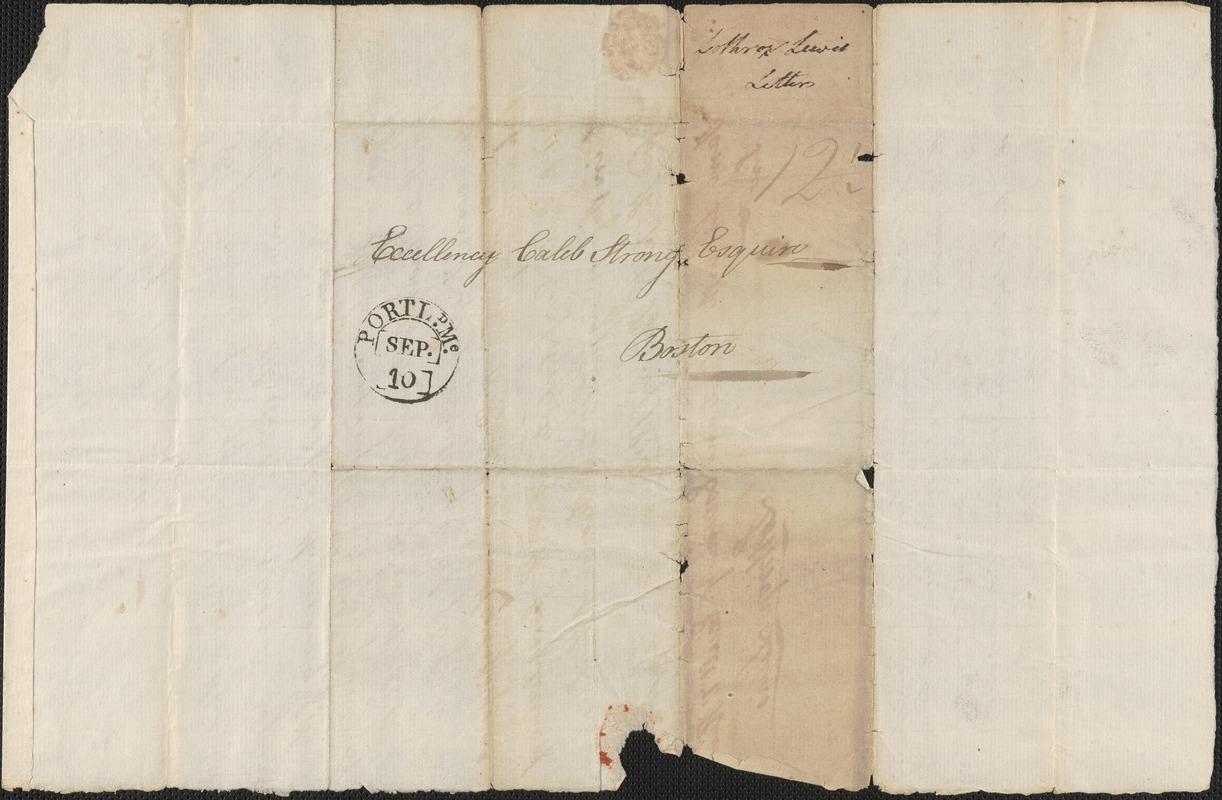 Lothrop Lewis
Letters
12 1/2
Excellency Caleb Strong Esquire
PORTL.D Me.
SEP.
10
Boston